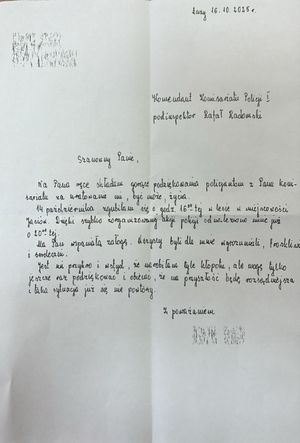 Żary 16.10.2025r.
Komendant Komisariatu Policji I
podinspektor Rafał
Szanowny Panie,
Na Pana ręce składam gorące podziękowania policjantom z Pana komi-
sariatu za uratowanie mi, być może, życia.
14 października zgubiłam się o godz. 16 w lesie w miejscowości
Dzięki szybko zorganizowanej akcji policji odnaleziono mnie już
o 20 tej.
Ma Pan wspaniałą załogę. Wszyscy byli dla mnie wyrozumiali, troskliwi
i serdeczni.
Jest mi przykro i wstyd, że narobiłam tyle kłopotu, ale mogę tylko
jeszcze raz podziękować i obiecać, że na przyszłość będę rozsądniejsza
i taka sytuacja już się nie powtórzy.
Z poważaniem